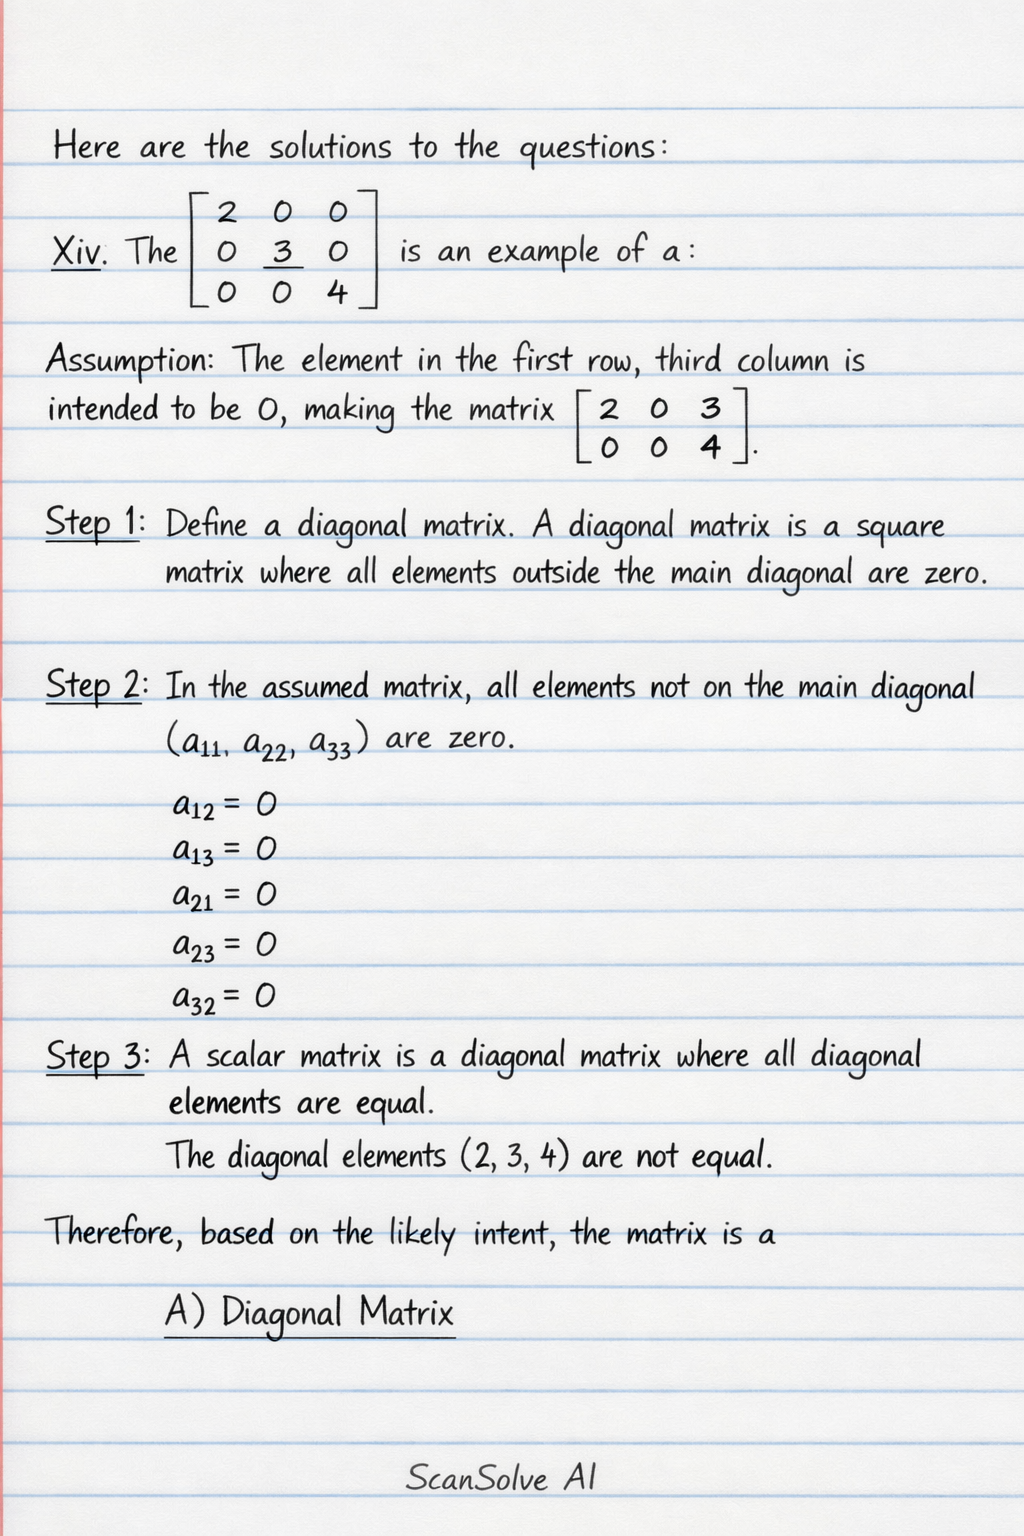 Here are the solutions to the questions:
2 0 0
Xiv. The 0 3 0 is an example of a:
0 0 4
Assumption: The element in the first row, third column is
intended to be 0, making the matrix [2 0 3
0 0 4].
Step 1: Define a diagonal matrix. A diagonal matrix is a square
matrix where all elements outside the main diagonal are zero.
Step 2: In the assumed matrix, all elements not on the main diagonal
(a₁₁, a₂₂, a₃₃) are zero.
a₁₂ = 0
a₁₃ = 0
a₂₁ = 0
a₂₃ = 0
a₃₂ = 0
Step 3: A scalar matrix is a diagonal matrix where all diagonal
elements are equal.
The diagonal elements (2, 3, 4) are not equal.
Therefore, based on the likely intent, the matrix is a
A) Diagonal Matrix
ScanSolve AI